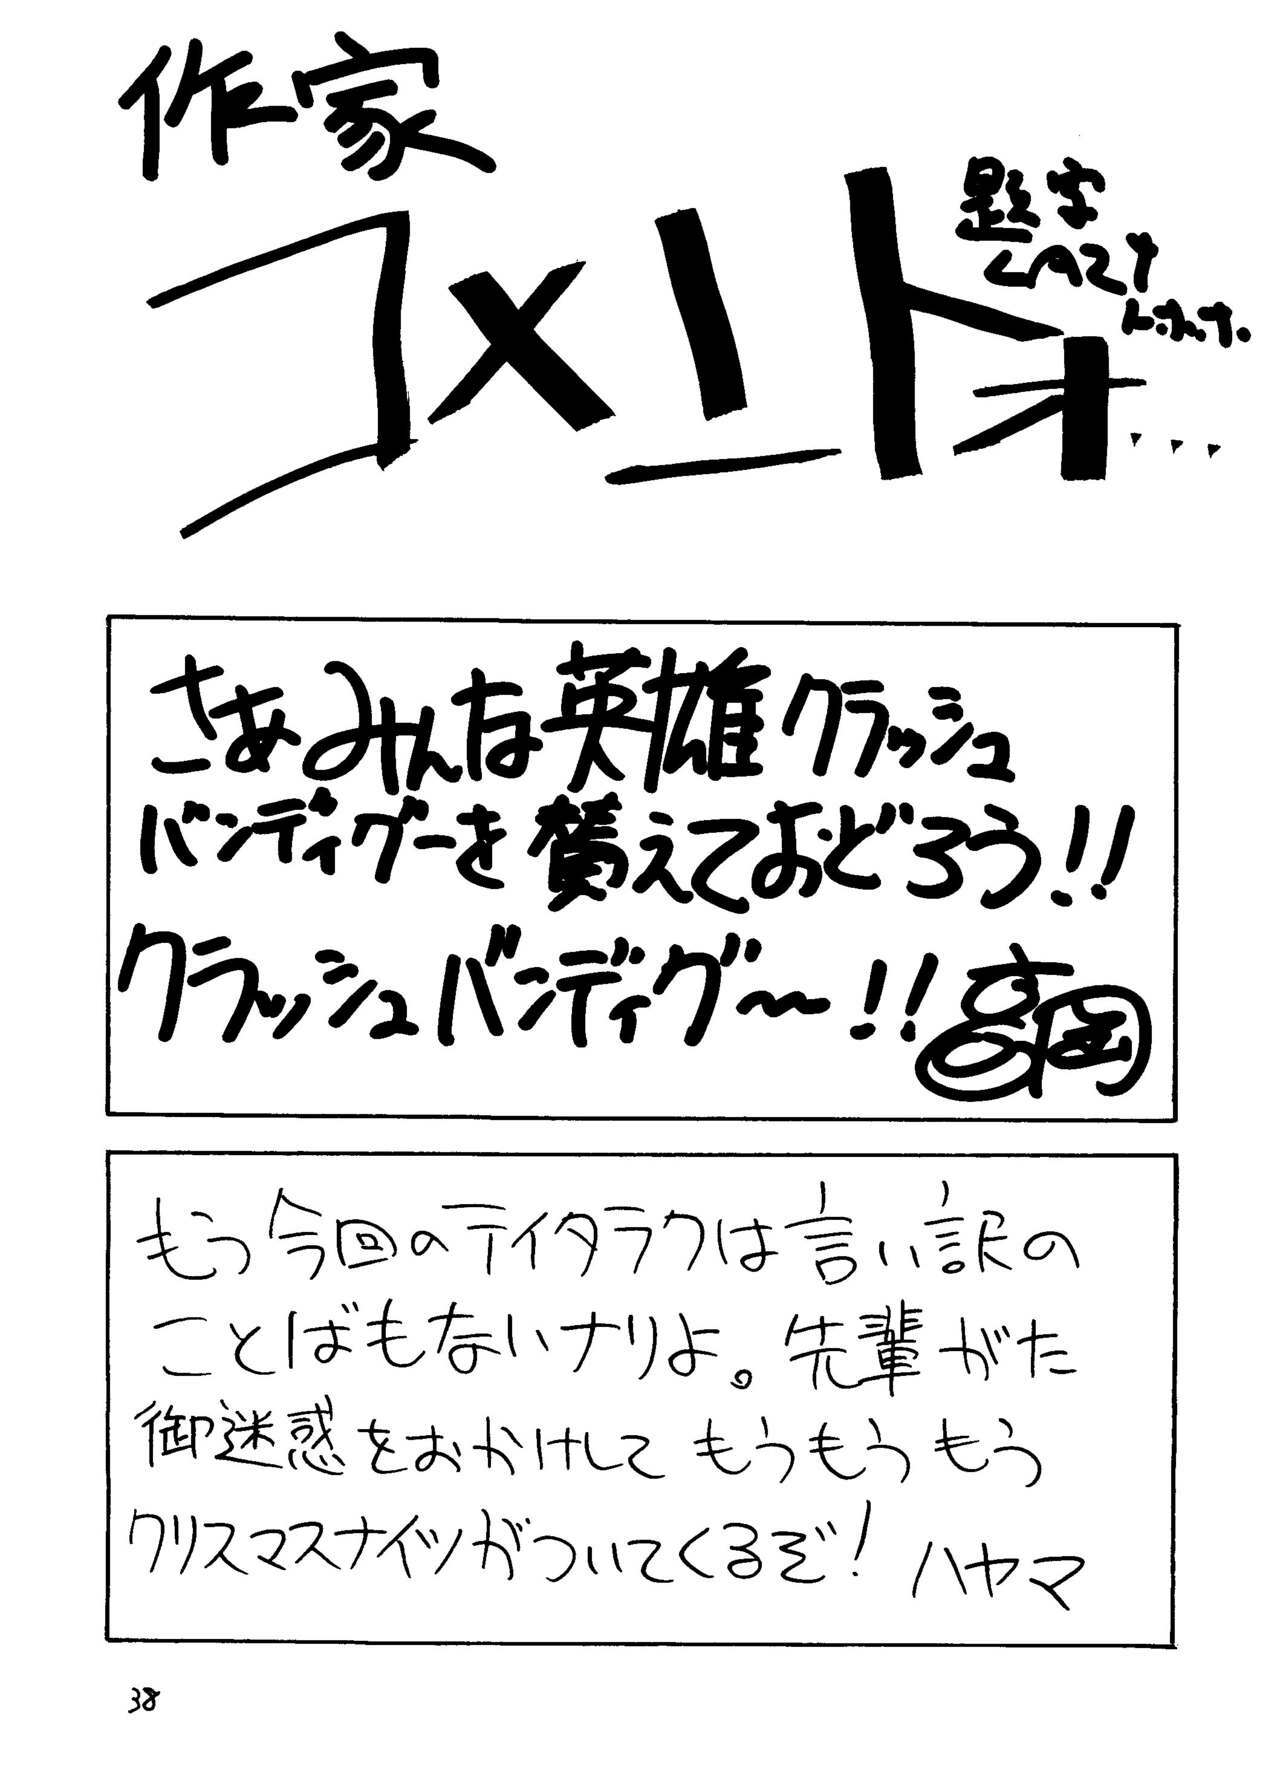 作家
コメントォ…
題字
LAZY
トホホ
さあみんな英雄クラッシュ
バンディグーを賛えておどろう!!
クラッシュバンディグ〜!! 高岡
もう今回のテイタラクは言い訳の
ことばもないナリよ。先輩がた
御迷惑をおかけして もうもうもう
クリスマスナイツがついてくるぞ! ハヤマ
38